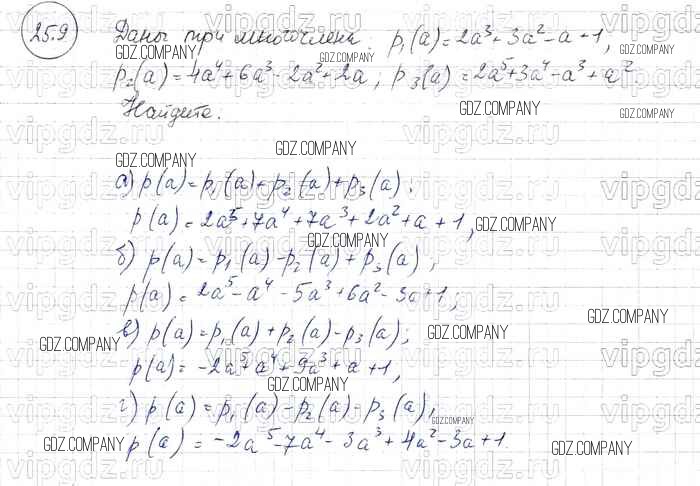 25.9 Даны три многочлена: p₁(a)=2a³+3a²-a+1,
p₂(a)=4a⁴+6a³-2a²+2a; p₃(a)=2a⁵+3a⁴-a³+a².
Найдите.
а) p(a)=p₁(a)+p₂(a)+p₃(a);
p(a)=2a⁵+7a⁴+7a³+2a²+a+1,
б) p(a)=p₁(a)-p₂(a)+p₃(a),
p(a)=2a⁵-a⁴-5a³+6a²-3a+1;
в) p(a)=p₁(a)+p₂(a)-p₃(a);
p(a)=-2a⁵+a⁴+9a³+a+1,
г) p(a)=p₁(a)-p₂(a)-p₃(a),
p(a)=-2a⁵-7a⁴-3a³+4a²-3a+1.
vipgdz.ru
GDZ.COMPANY